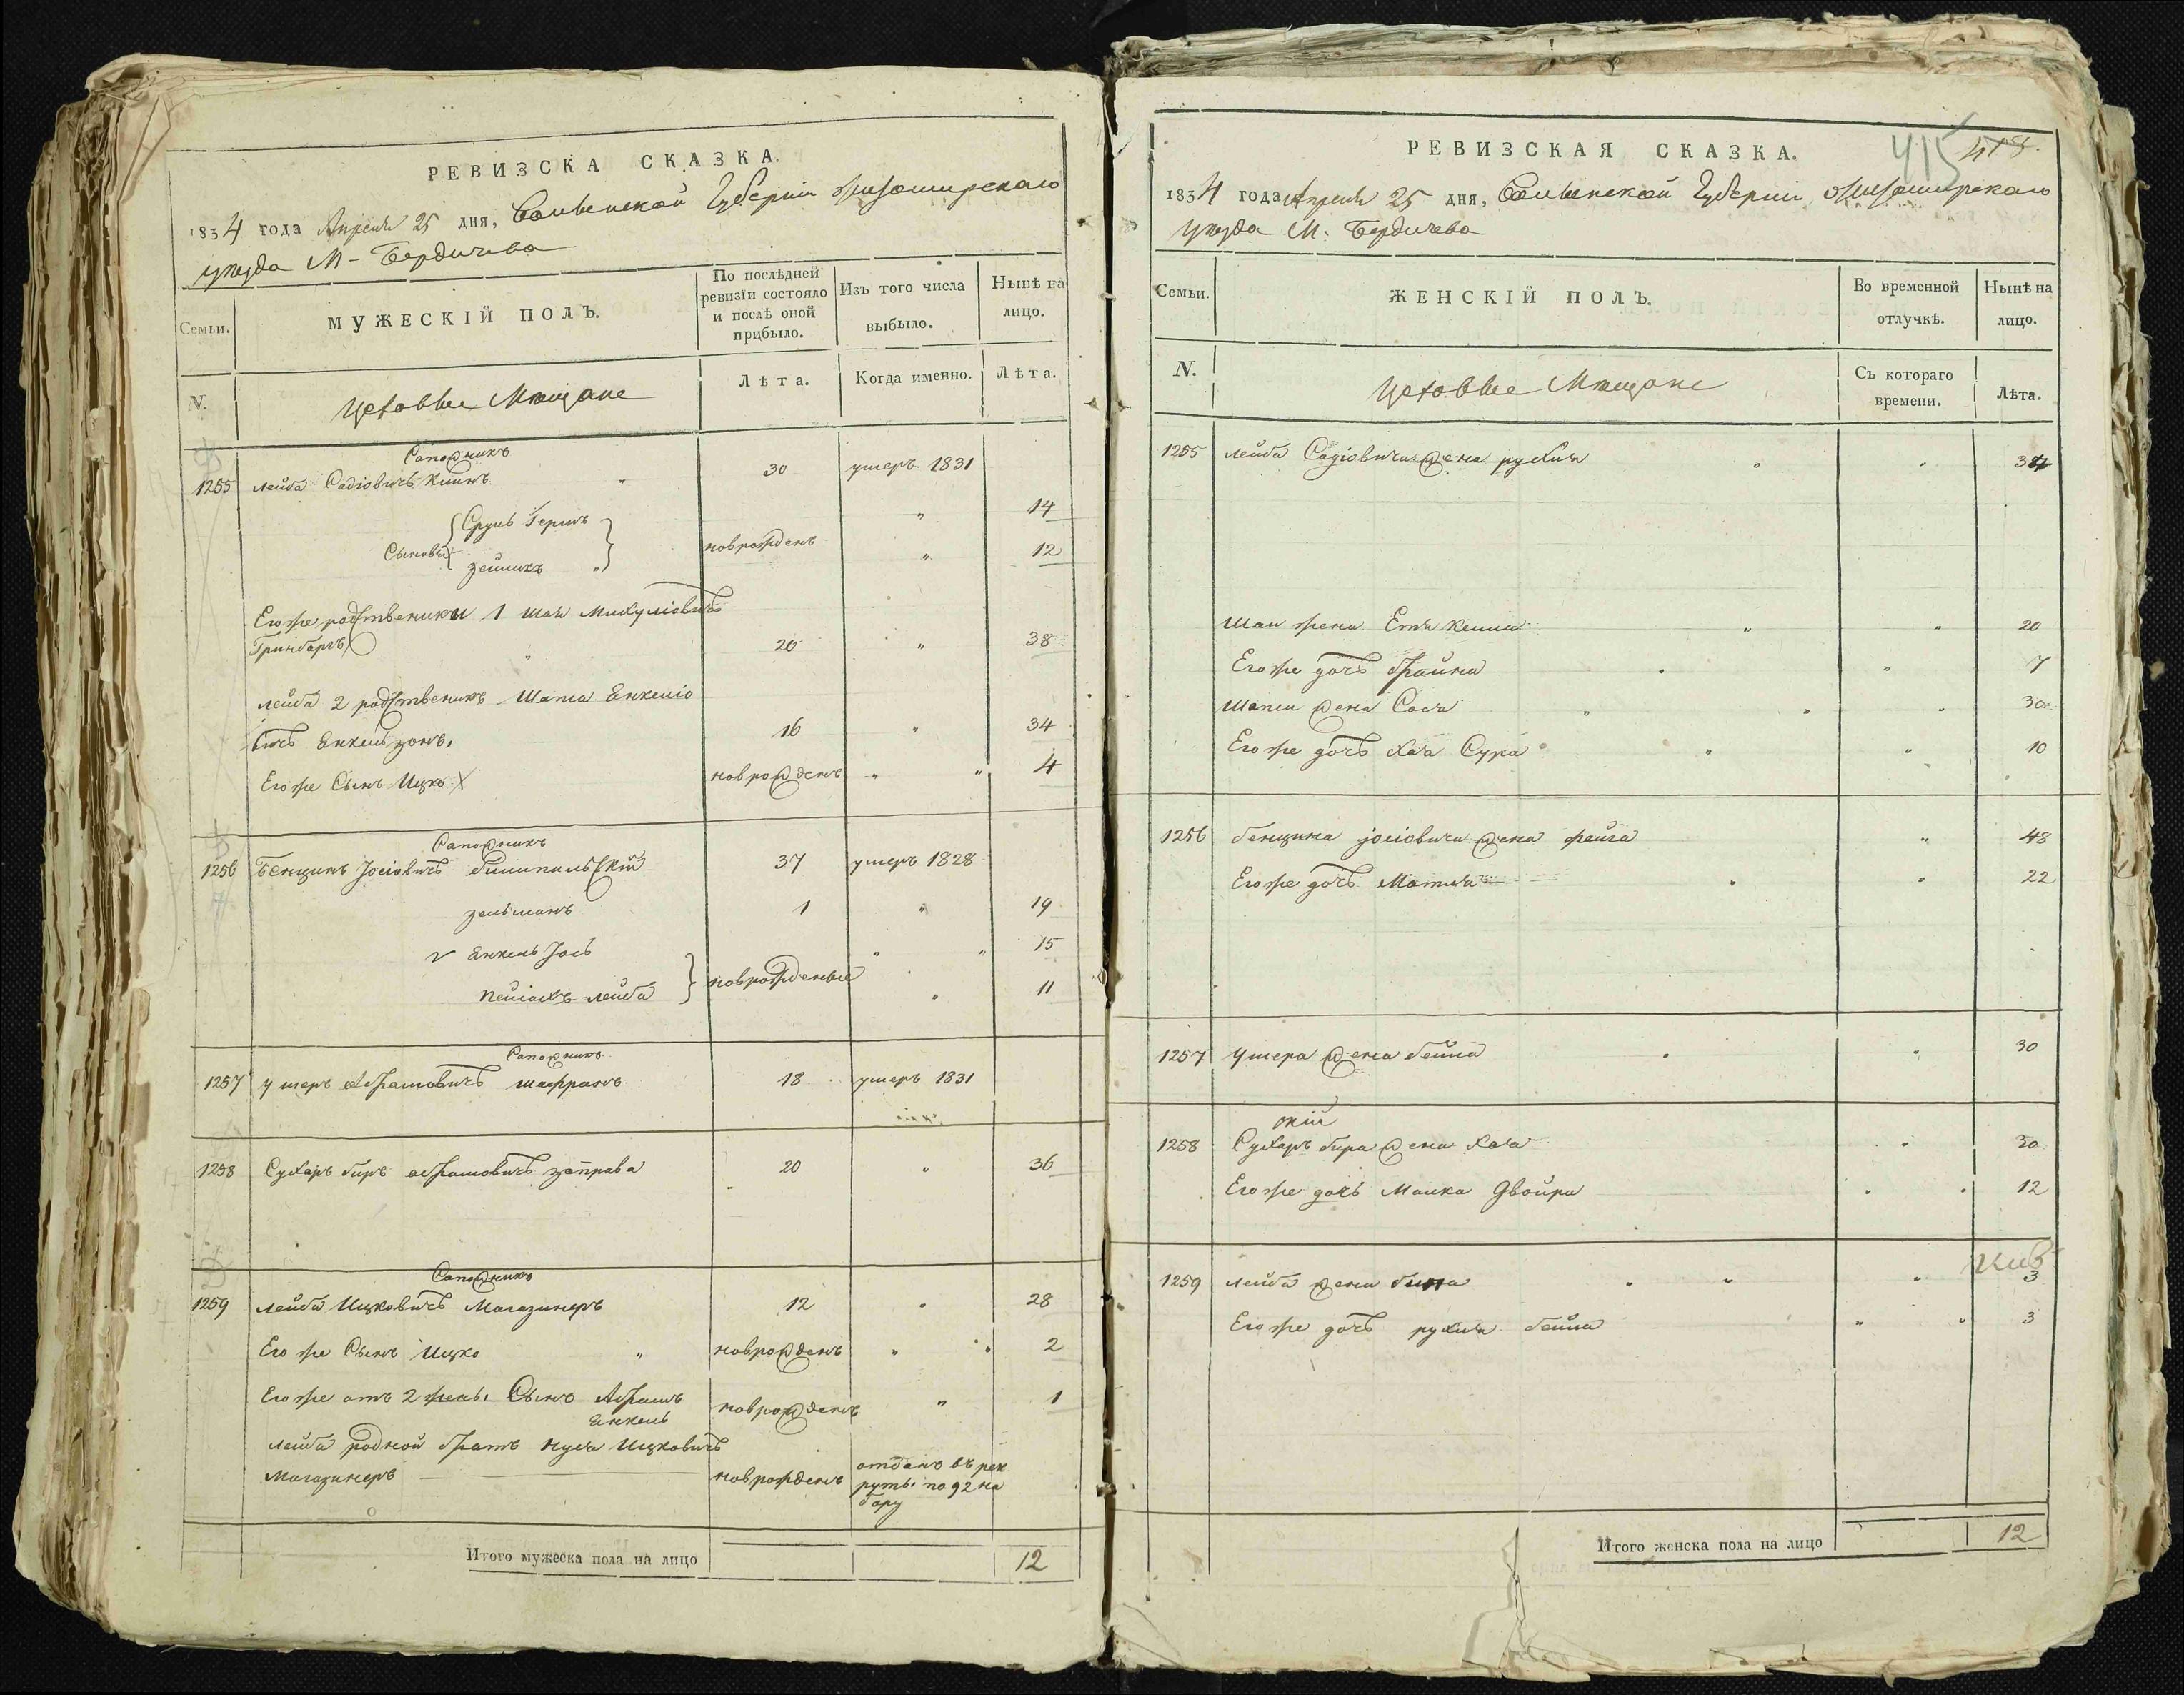 РЕВИЗСКА СКАЗКА.
1834 года Апреля 25 дня, Волынской Губерніи Житомирскаго
уезда М- Бердичева
Семьи.
МУЖЕСКІЙ ПОЛЪ.
По послѣдней ревизіи состояло и послѣ оной прибыло.
Изъ того числа выбыло.
Нынѣ на лицо.
N.
Цеховые Мещане
Лѣта.
Когда именно.
Лѣта.
Сапожникъ
1255 Лейба Садіовичъ 30 умеръ 1831
Сруль Герш 14
Сыновья новрожденъ
Зейликъ 12
Его же родственики 1 Шая
Гринбаргъ 20 38
Лейба 2 родственикъ Шапса Енкеліо
вичъ Енкельзонъ 16 34
Его же Сынъ Ицко новрожденъ 4
Сапожникъ
1256 Бенционъ Іосіовичъ 37 умеръ 1828
Зельманъ 1 19
Енкель Іось 15
Пейсахъ Лейба новрожденые 11
Сапожникъ
1257 Ушеръ Абрамовичъ Шафранъ 18 умеръ 1831
1258 Сухаръ Биръ Абрамовичъ Заправа 20 36
Сапожникъ
1259 Лейба Ицковичъ Магазинеръ 12 28
Его же Сынъ Ицко новрожденъ 2
Его же отъ 2 жены Сынъ Абрамъ новрожденъ 1
Енкель
Лейба родной братъ Нуса Ицковичъ
Магазинеръ новрожденъ отданъ въ рек
руты по 92 на
бору
Итого мужеска пола на лицо 12
РЕВИЗСКАЯ СКАЗКА.
415 418.
1834 года Апреля 25 дня, Волынской Губерніи Житомирскаго
уезда М. Бердичева
Семьи.
ЖЕНСКІЙ ПОЛЪ.
Во временной отлучкѣ.
Нынѣ на лицо.
N.
Цеховые Мещане
Съ котораго времени.
Лѣта.
1255 Лейба Садіовича жена Рухля
Шаи жена Етя Кейла 20
Его же дочь Брайна 7
Шапси жена Сося 30
Его же дочь Хая Сура 10
1256 Бенциона Іосіовича жена Фейга 48
Его же дочь Матля 22
1257 Ушера жена Бейла 30
1258 Сухаръ Бира жена Хая 30
Его же дочь Малка Двойра 12
1259 Лейба жена
Его же дочь Рухля Бейла 3
Итого женска пола на лицо 12